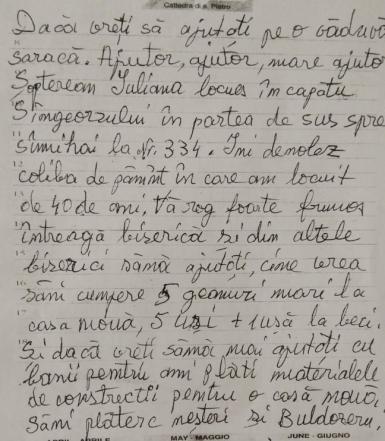 Cattedra di s. Pietro
Dacă vreți să ajutați pe o văduvă
saracă. Ajutor, ajutor, mare ajuto
Șopterean Iuliana locues în capătu
Sîngeorzului în partea de sus spre
sîmihai la Nr. 334. Îmi demolez
coliba de pămînt în care am locuit
de 40 de ani, Vă rog foarte frumos
întreagă biserică și din altele
biserici sămă ajutați, cine vrea
sămi cumpere 5 geamuri mari la
casa nouă, 5 uși + 1 ușă la beci.
Și dacă vreți sămă mai ajutați cu
banii pentru ami plăti materialele
de constructii pentru o casă nouă,
sămi plătesc meșteri și Buldozeru,
APRILE MAY - MAGGIO JUNE - GIUGNO